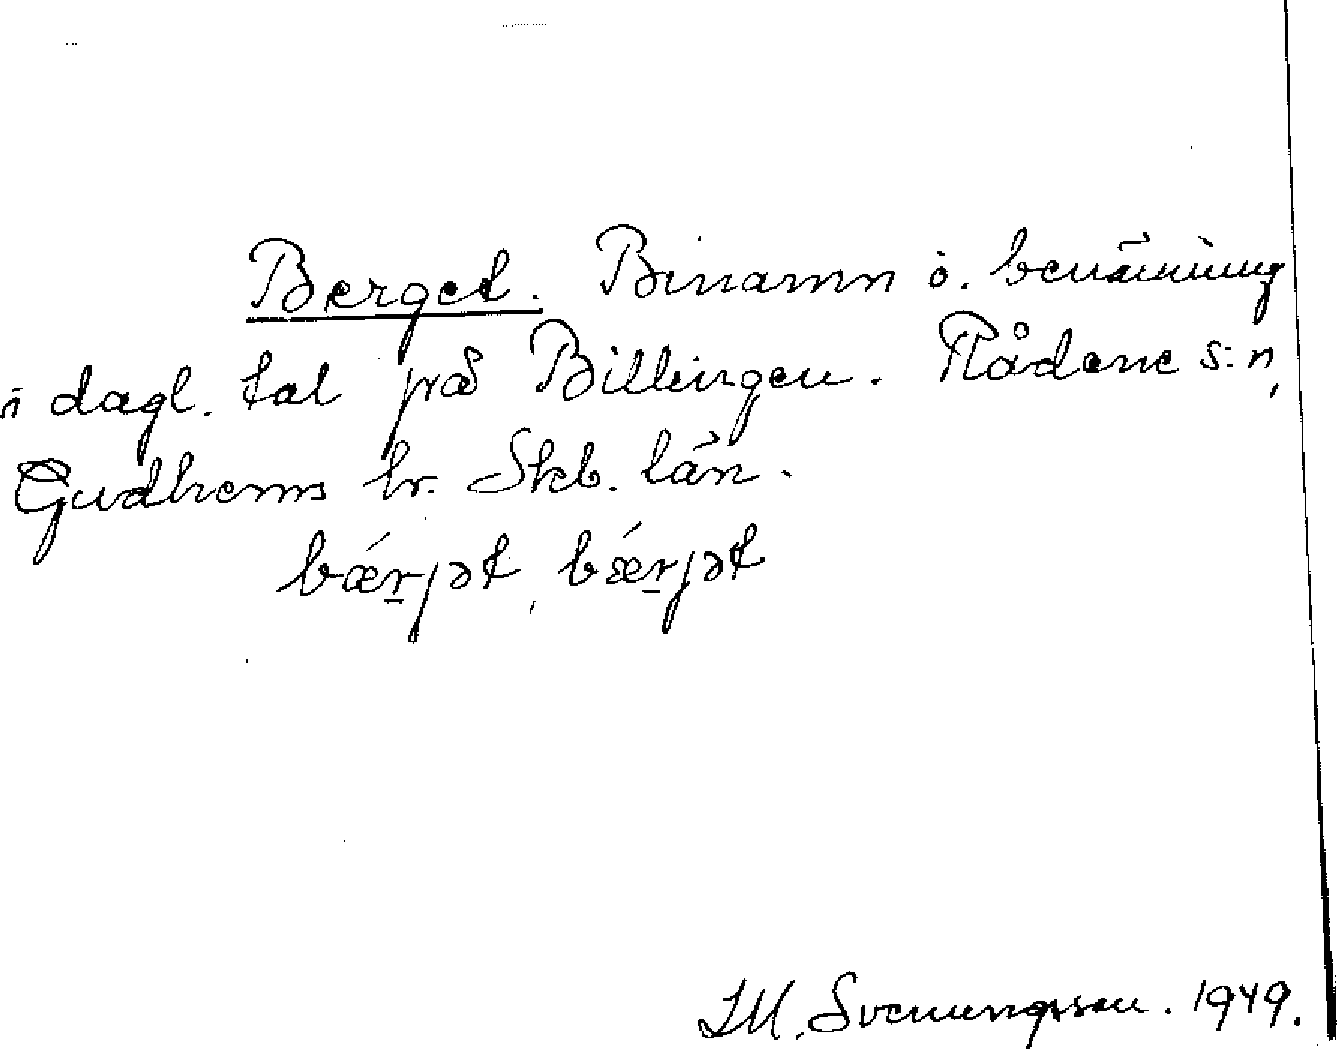 Berget. Binamn o. benämning
i dagl. tal på Billingen. Rådene s:n,
Gudhems hr. Skb. län.
bǽr̠jət, bǽr̠jət
I.M. Svenungsson. 1949.